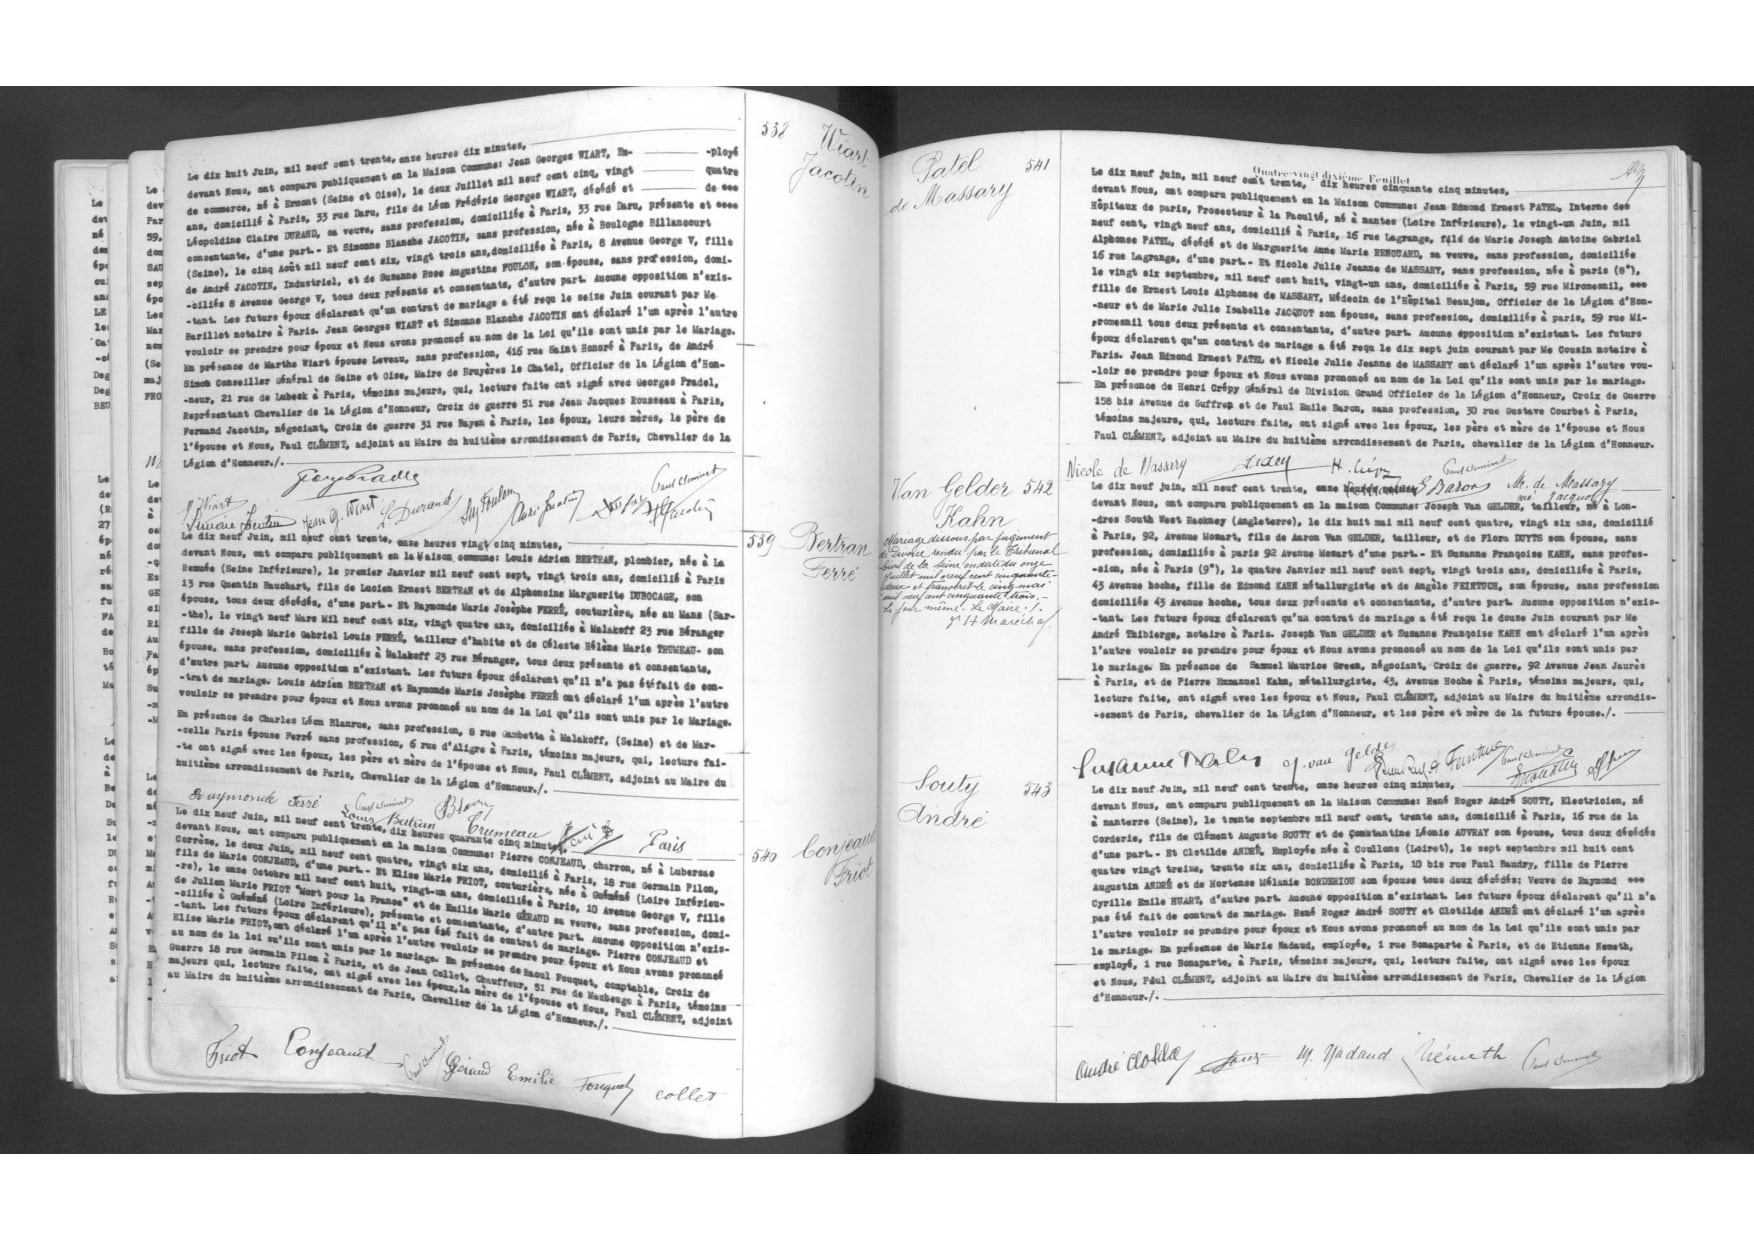 538 Wiart
Jacotin
Le dix huit Juin, mil neuf cent trente, onze heures dix minutes,
devant Nous, ont comparu publiquement en la Maison Commune: Jean Georges WIART, Em- -ployé
de commerce, né à Ermont (Seine et Oise), le deux Juillet mil neuf cent cinq, vingt quatre
ans, domicilié à Paris, 33 rue Daru, fils de Léon Frédéric Georges WIART, décédé et de
Léopoldine Claire DURAND, sa veuve, sans profession, domiciliée à Paris, 33 rue Daru, présente et
consentante, d'une part.- Et Simonne Blanche JACOTIN, sans profession, née à Boulogne Billancourt
(Seine), le cinq Août mil neuf cent six, vingt trois ans, domiciliée à Paris, 8 Avenue George V, fille
de André JACOTIN, Industriel, et de Suzanne Rose Augustine FOULON, son épouse, sans profession, domi-
-ciliés 8 Avenue George V, tous deux présents et consentants, d'autre part. Aucune opposition n'exis-
-tant. Les futurs époux déclarent qu'un contrat de mariage a été reçu le seize Juin courant par Me
Barillot notaire à Paris. Jean Georges WIART et Simonne Blanche JACOTIN ont déclaré l'un après l'autre
vouloir se prendre pour époux et Nous avons prononcé au nom de la Loi qu'ils sont unis par le Mariage.
En présence de Marthe Wiart épouse Leveau, sans profession, 416 rue Saint Honoré à Paris, de André
Simon Conseiller Général de Seine et Oise, Maire de Bruyères le Chatel, Officier de la Légion d'Hon-
-neur, 21 rue de Lubeck à Paris, témoins majeurs, qui, lecture faite ont signé avec Georges Pradel,
Représentant Chevalier de la Légion d'Honneur, Croix de guerre 51 rue Jean Jacques Rousseau à Paris,
Fernand Jacotin, négociant, Croix de guerre 31 rue Bayen à Paris, les époux, leurs mères, le père de
l'épouse et Nous, Paul CLÉMENT, adjoint au Maire du huitième arrondissement de Paris, Chevalier de la
Légion d'Honneur./.
M Wiart Simone Jacotin Jean G. Wiart L Durand
539 Bertran
Ferré
Le dix neuf Juin, mil neuf cent trente, onze heures vingt cinq minutes,
devant Nous, ont comparu publiquement en la Maison commune: Louis Adrien BERTRAN, plombier, né à La
Remuée (Seine Inférieure), le premier Janvier mil neuf cent sept, vingt trois ans, domicilié à Paris
13 rue Quentin Bauchart, fils de Lucien Ernest BERTRAN et de Alphonsine Marguerite DUBOCAGE, son
épouse, tous deux décédés, d'une part.- Et Raymonde Marie Josèphe FERRÉ, couturière, née au Mans (Sar-
-the), le vingt neuf Mars Mil neuf cent six, vingt quatre ans, domiciliée à Malakoff 23 rue Béranger
fille de Joseph Marie Gabriel Louis FERRÉ, tailleur d'habits et de Céleste Hélène Marie TRUMEAU- son
épouse, sans profession, domiciliés à Malakoff 23 rue Béranger, tous deux présents et consentants,
d'autre part. Aucune opposition n'existant. Les futurs époux déclarent qu'il n'a pas été fait de con-
-trat de mariage. Louis Adrien BERTRAN et Raymonde Marie Josèphe FERRÉ ont déclaré l'un après l'autre
vouloir se prendre pour époux et Nous avons prononcé au nom de la Loi qu'ils sont unis par le Mariage.
En présence de Charles Léon Blanrue, sans profession, 8 rue Gambetta à Malakoff, (Seine) et de Mar-
-celle Paris épouse Ferré sans profession, 6 rue d'Aligre à Paris, témoins majeurs, qui, lecture fai-
-te ont signé avec les époux, les père et mère de l'épouse et Nous, Paul CLÉMENT, adjoint au Maire du
huitième arrondissement de Paris, Chevalier de la Légion d'Honneur./.
Raymonde Ferré Louis Bertran Trumeau Paris
540 Conjeaud
Friot
Le dix neuf Juin, mil neuf cent trente, dix heures quarante cinq minutes,
devant Nous, ont comparu publiquement en la maison Commune: Pierre CONJEAUD, charron, né à Lubersac
Corrèse, le deux Juin, mil neuf cent quatre, vingt six ans, domicilié à Paris, 18 rue Germain Pilon,
fils de Marie CONJEAUD, d'une part.- Et Elise Marie FRIOT, couturière, née à Guéméné (Loire Inférieu-
-re), le onze Octobre mil neuf cent huit, vingt-un ans, domiciliée à Paris, 10 Avenue George V, fille
de Julien Marie FRIOT "Mort pour la France" et de Emilie Marie GÉRAUD sa veuve, sans profession, domi-
-ciliée à Guéméné (Loire Inférieure), présente et consentante, d'autre part. Aucune opposition n'exis-
-tant. Les futurs époux déclarent qu'il n'a pas été fait de contrat de mariage. Pierre CONJEAUD et
Elise Marie FRIOT, ont déclaré l'un après l'autre vouloir se prendre pour époux et Nous avons prononcé
au nom de la loi qu'ils sont unis par le mariage. En présence de Raoul Fouquet, comptable, Croix de
Guerre 18 rue Germain Pilon à Paris, et de Jean Collet, Chauffeur, 51 rue de Maubeuge à Paris, témoins
majeurs qui, lecture faite, ont signé avec les époux, la mère de l'épouse et Nous, Paul CLÉMENT, adjoint
au Maire du huitième arrondissement de Paris, Chevalier de la Légion d'Honneur./.
Friot Conjeaud Géraud Emilie Fouquet collet
Quatre-vingt dixième Feuillet
Patel 541
de Massary
Le dix neuf juin, mil neuf cent trente, dix heures cinquante cinq minutes,
devant Nous, ont comparu publiquement en la Maison Commune: Jean Edmond Ernest PATEL, Interne des
Hôpitaux de paris, Prosecteur à la Faculté, né à nantes (Loire Inférieure), le vingt-un Juin, mil
neuf cent, vingt neuf ans, domicilié à Paris, 16 rue Lagrange, fils de Marie Joseph Antoine Gabriel
Alphonse PATEL, décédé et de Marguerite Anne Marie RENOUARD, sa veuve, sans profession, domiciliée
16 rue Lagrange, d'une part.- Et Nicole Julie Jeanne de MASSARY, sans profession, née à paris (8°),
le vingt six septembre, mil neuf cent huit, vingt-un ans, domiciliée à Paris, 59 rue Miromesnil,
fille de Ernest Louis Alphonse de MASSARY, Médecin de l'Hôpital Beaujon, Officier de la Légion d'Hon-
-neur et de Marie Julie Isabelle JACQUOT son épouse, sans profession, domiciliés à paris, 59 rue Mi-
-romesnil tous deux présents et consentants, d'autre part. Aucune opposition n'existant. Les futurs
époux déclarent qu'un contrat de mariage a été reçu le dix sept juin courant par Me Cousin notaire à
Paris. Jean Edmond Ernest PATEL et Nicole Julie Jeanne de MASSARY ont déclaré l'un après l'autre vou-
-loir se prendre pour époux et Nous avons prononcé au nom de la Loi qu'ils sont unis par le mariage.
En présence de Henri Crépy Général de Division Grand Officier de la Légion d'Honneur, Croix de Guerre
158 bis Avenue de Suffren et de Paul Emile Baron, sans profession, 30 rue Gustave Courbet à Paris,
témoins majeurs, qui, lecture faite, ont signé avec les époux, les père et mère de l'épouse et Nous
Paul CLÉMENT, adjoint au Maire du huitième arrondissement de Paris, chevalier de la Légion d'Honneur.
Nicole de Massary E Baron M. de Massary
née Jacquot
Van Gelder 542
Kahn
Mariage dissous par jugement
de Divorce rendu par le Tribunal
Civil de la Seine en date du onze
juillet mil neuf cent cinquante-
deux et transcrit le cinq mai
mil neuf cent cinquante trois.-
Le jour même. Le Maire./.
Le dix neuf juin, mil neuf cent trente, onze
devant Nous, ont comparu publiquement en la maison Commune: Joseph Van GELDER, tailleur, né à Lon-
-dres South West Hackney (Angleterre), le dix huit mai mil neuf cent quatre, vingt six ans, domicilié
à Paris, 92, Avenue Mozart, fils de Aaron Van GELDER, tailleur, et de Flora DUYTS son épouse, sans
profession, domiciliés à paris 92 Avenue Mozart d'une part.- Et Susanne Françoise KAHN, sans profes-
-sion, née à Paris (9°), le quatre Janvier mil neuf cent sept, vingt trois ans, domiciliée à Paris,
43 Avenue hoche, fille de Edmond KAHN métallurgiste et de Angèle FEINTUCH, son épouse, sans profession
domiciliés 43 Avenue hoche, tous deux présents et consentants, d'autre part. Aucune opposition n'exis-
-tant. Les futurs époux déclarent qu'un contrat de mariage a été reçu le douze Juin courant par Me
André Thibierge, notaire à Paris. Joseph Van GELDER et Susanne Françoise KAHN ont déclaré l'un après
l'autre vouloir se prendre pour époux et Nous avons prononcé au nom de la Loi qu'ils sont unis par
le mariage. En présence de Samuel Maurice Green, négociant, Croix de guerre, 92 Avenue Jean Jaurès
à Paris, et de Pierre Emmanuel Kahn, métallurgiste, 43, Avenue Hoche à Paris, témoins majeurs, qui,
lecture faite, ont signé avec les époux et Nous, Paul CLÉMENT, adjoint au Maire du huitième arrondis-
-sement de Paris, chevalier de la Légion d'Honneur, et les père et mère de la future épouse./.
Susanne Kahn J. van Gelder
Souty 543
André
Le dix neuf Juin, mil neuf cent trente, onze heures cinq minutes,
devant Nous, ont comparu publiquement en la Maison Commune: René Roger André SOUTY, Electricien, né
à nanterre (Seine), le trente septembre mil neuf cent, trente ans, domicilié à Paris, 16 rue de la
Corderie, fils de Clément Auguste SOUTY et de Constantine Léonie AUVRAY son épouse, tous deux décédés
d'une part.- Et Clotilde ANDRÉ, Employée née à Coullons (Loiret), le sept septembre mil huit cent
quatre vingt treize, trente six ans, domiciliée à Paris, 10 bis rue Paul Baudry, fille de Pierre
Augustin ANDRÉ et de Hortense Mélanie BORDERIOU son épouse tous deux décédés; Veuve de Raymond
Cyrille Emile HUART, d'autre part. Aucune opposition n'existant. Les futurs époux déclarent qu'il n'a
pas été fait de contrat de mariage. René Roger André SOUTY et Clotilde ANDRÉ ont déclaré l'un après
l'autre vouloir se prendre pour époux et Nous avons prononcé au nom de la Loi qu'ils sont unis par
le mariage. En présence de Marie Nadaud, employée, 1 rue Bonaparte à Paris, et de Etienne Nemeth,
employé, 1 rue Bonaparte, à Paris, témoins majeurs, qui, lecture faite, ont signé avec les époux
et Nous, Paul CLÉMENT, adjoint au Maire du huitième arrondissement de Paris, Chevalier de la Légion
d'Honneur./.
André Clotilde Souty M. Nadaud Németh